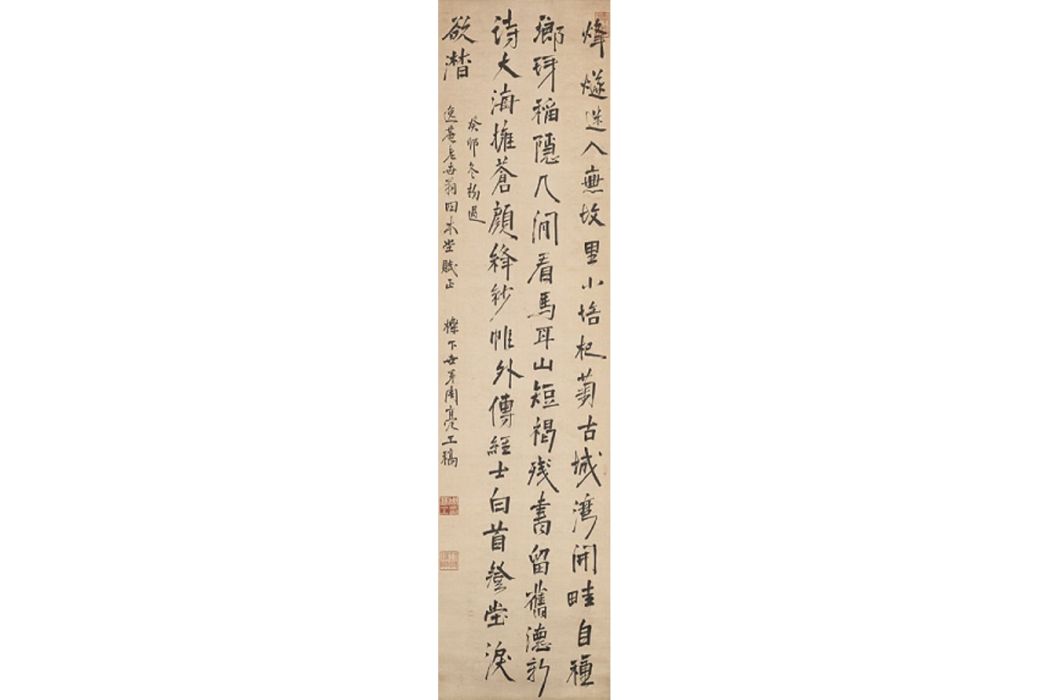 烽燧迷人蕪故里小培杞菊古城灣開畦自種
瑯琊稻隱几閒看馬耳山短褐殘書留舊德新
詩大海擁蒼顏絳紗帷外傳經士白首登堂淚
欲潸
癸卯冬抄過
逸菴老世翁因木堂賦正 櫟下世弟周亮工稿